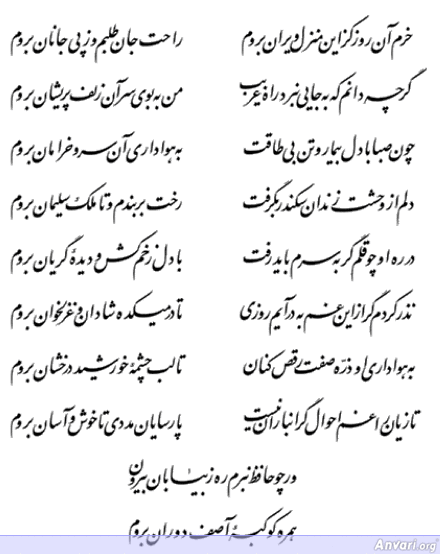 خرم آن روز کز این منزل ویران بروم راحت جان طلبم وز پی جانان بروم
گر چه دانم که به جایی نبرد راه غریب من به بوی سر آن زلف پریشان بروم
چون صبا با دل بیمار و تن بی طاقت به هواداری آن سرو خرامان بروم
دلم از وحشت زندان سکندر بگرفت رخت بربندم و تا ملک سلیمان بروم
در ره او چو قلم گر به سرم باید رفت با دل زخم کش و دیدهٔ گریان بروم
نذر کردم گر از این غم به درآیم روزی تا در میکده شادان و غزلخوان بروم
به هواداری او ذره صفت رقص کنان تا لب چشمهٔ خورشید درخشان بروم
تازیان را غم احوال گرانباران نیست پارسایان مددی تا خوش و آسان بروم
ور چو حافظ نبرم ره ز بیابان بیرون
همره کوکبهٔ آصف دوران بروم
Anvari.org